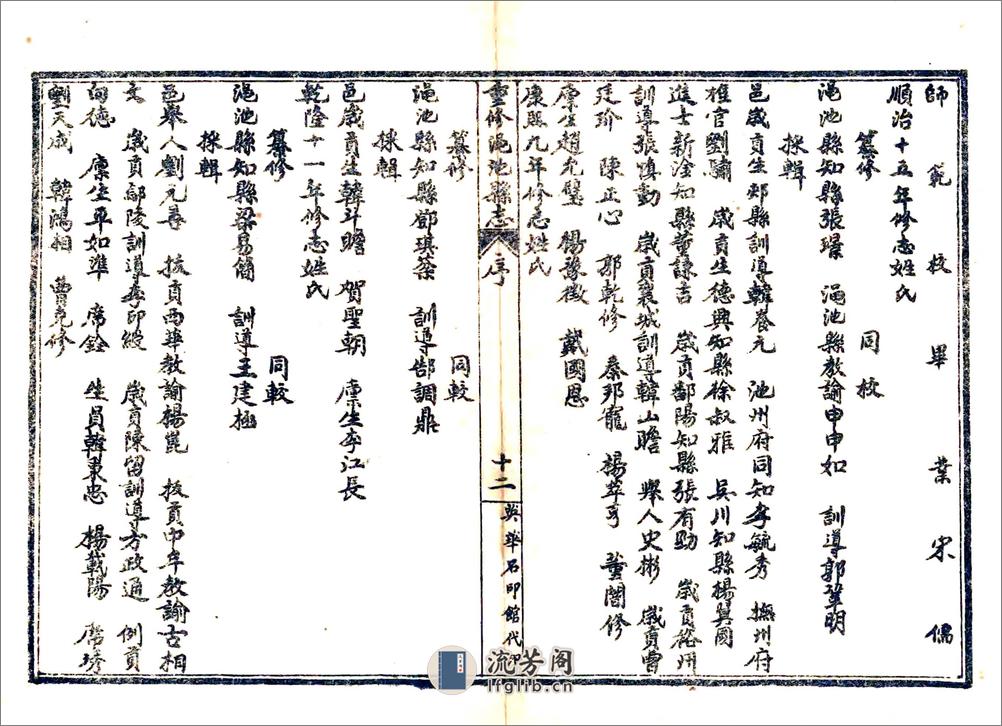 師範校畢業宋儒
順治十五年修志姓氏
纂修　同校
澠池縣知縣張璟　澠池縣教諭申申如　訓導郭鞏明
採輯
邑歲貢生郟縣訓導韓養元　池州府同知李毓秀　撫州府
推官劉瀟　歲貢生德興知縣徐叔雅　吳川知縣楊冀國
進士新淦知縣董謙吉　歲貢鄱陽知縣張有勛　歲貢裕州
訓導張慎動　歲貢襄城訓導韓山瞻　舉人史彬　歲貢曾
廷玠　陳正心　郭乾修　秦邦寵　楊萃亨　董闇修
廩生趙允璧　楊豫徵　戴國恩
康熙九年修志姓氏
重修澠池縣志　序　十二　英華石印館代印
纂修　同較
澠池縣知縣鄧琪棻　訓導郜調鼎
採輯
邑歲貢生韓斗瞻　賀聖朝　廩生李江長
乾隆十一年修志姓氏
纂修　同較
澠池縣知縣梁易簡　訓導王建極
採輯
邑舉人劉元善　拔貢西華教諭楊崑　拔貢中牟教諭古相
文　歲貢鄢陵訓導李印綬　歲貢陳留訓導方政通　例貢
向德　廩生平如準　席銓　生員韓秉忠　楊載陽　席琇
劉天成　韓鴻相　曹克修
流芳阁
lfglib.cn